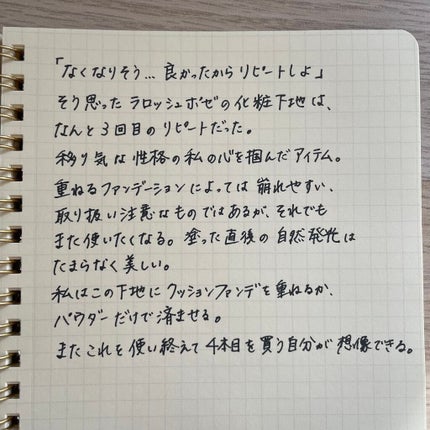 「なくなりそう…良かったからリピートしよ」
そう思ったラロッシュポゼの化粧下地は、
なんと3回目のリピートだった。
移り気な性格の私の心を掴んだアイテム。
重ねるファンデーションによっては崩れやすい、
取り扱い注意なものではあるが、それでも
また使いたくなる。塗った直後の自然発光は
たまらなく美しい。
私はこの下地にクッションファンデを重ねるか、
パウダーだけで済ませる。
またこれを使い終えて4本目を買う自分が想像できる。